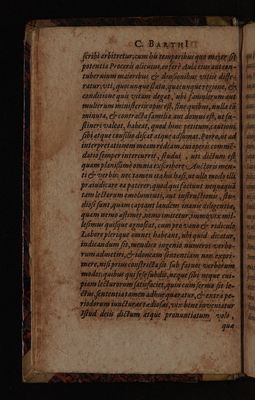 C. BARTHI
scribi arbitretur, cum his temporibus quo major sit
potentia Proceris alicujus, eo ferè Aula eius aut con-
tubernium maioribus & densioribus vitiis diffe-
ratur, vti, quocunque statu, quacunque regione, &
conditione quis vitam deget, ubi famulorum aut
mulierum ministerio opus est, sine quibus, nulla tã
minuta, & contracta familia aut domus est, ut su-
stinere valeat, habeat, quod hinc petitum, cautioni
sibi atque consilio discat atque adsumat. Porro, ut ad
interpretationem
semper interuerti, studui, uti dictum est
quam planissimo omnia exscribere, Auctoris men-
ti & verbis, nec tamen ita his hæsi, ut ullo modo illi
præiudicare ea paterer, quod qui faciunt nequaquã
tam lectorum emolumenti, aut instructionis, stu-
diosi sunt, quàm captant laudem inanis diligentiæ,
quam nemo æstimet, nemo imitetur, immo vix mil-
lesimus quisque agnoscat, cum pro vano & ridiculo
Labore plerique omnes habeant, ubi quid dicatur,
indicandum sit, mendico ingenio numeros verbo-
rum admetiri, & idoneam sententiam non expri-
mere, nisi prius constrictã sit sub suos verborum
modos, quibus qui sese subdit, neque sibi neque cui-
piam lectorum satisfaciet, quin cum sermo sit le-
ctus, sententia tamen adhuc quæratur, & extra pe-
riodorum iuncturas tædiosas, vix bene inveniatur
Istud deus dictum atque pronuntiatum volo,
quæ